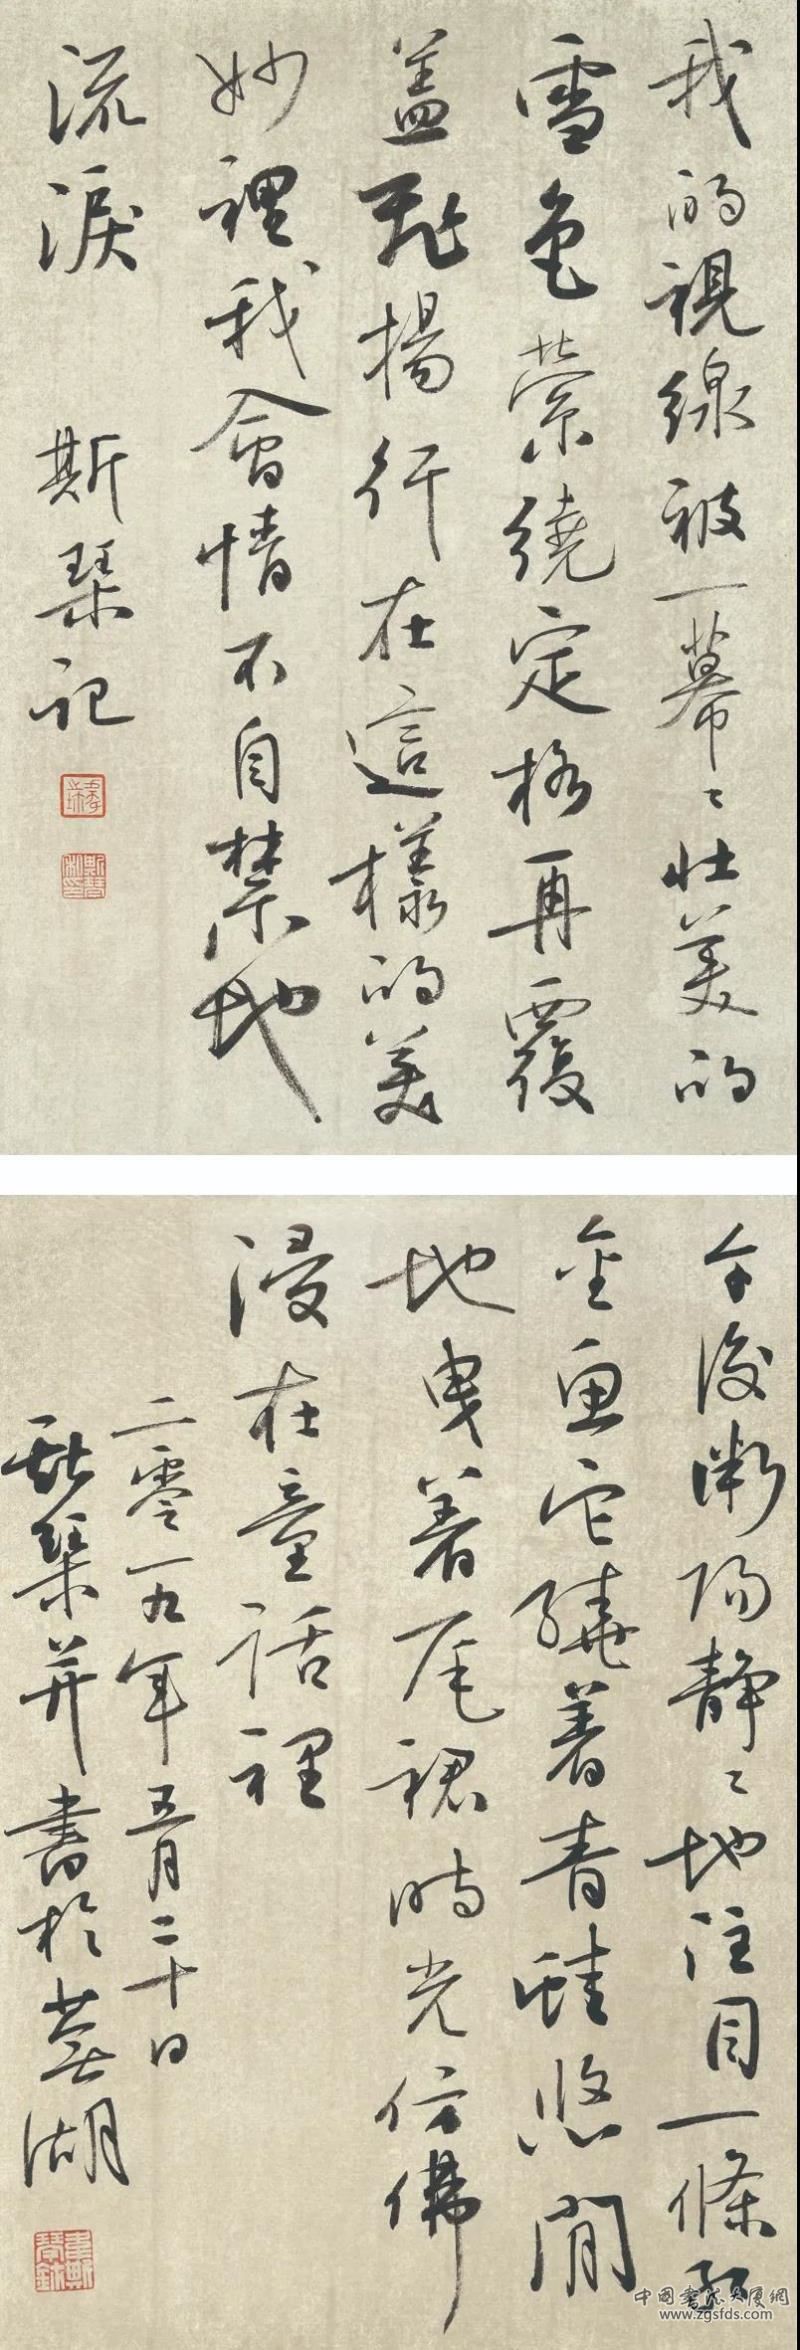 我的視線被一幕〻壯美的
雪色縈繞定格再覆
蓋飛揚行在這樣的美
妙裡我會情不自禁地
流淚 斯琹記
午後陽静〻地注目一條紅
金魚它繞着青蛙悠閒
地曳着尾裙時光仿佛
浸在童話裡
二零一九年五月二十日
斯琹并書於蕪湖
中國書法大廈網
www.zgsfds.com